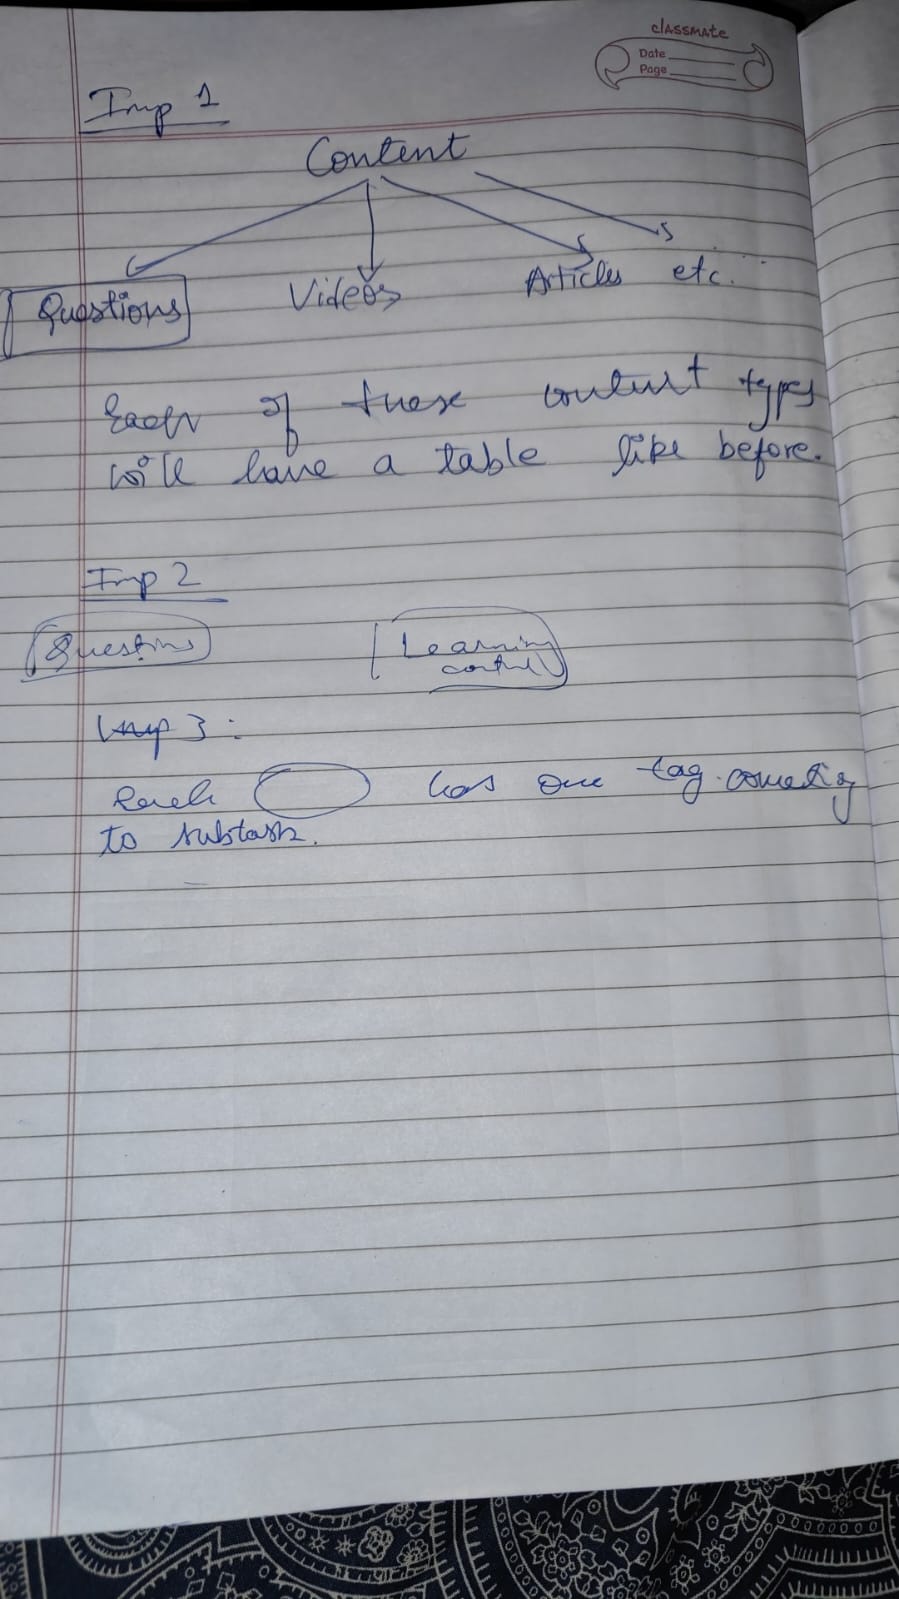 classmate
Date
Page
Imp 1
Content
Questions Videos Articles etc...
Each of these content types
will have a table like before.
Imp 2
Questions Learning
Imp 3:
Each has one tag
to subtask.